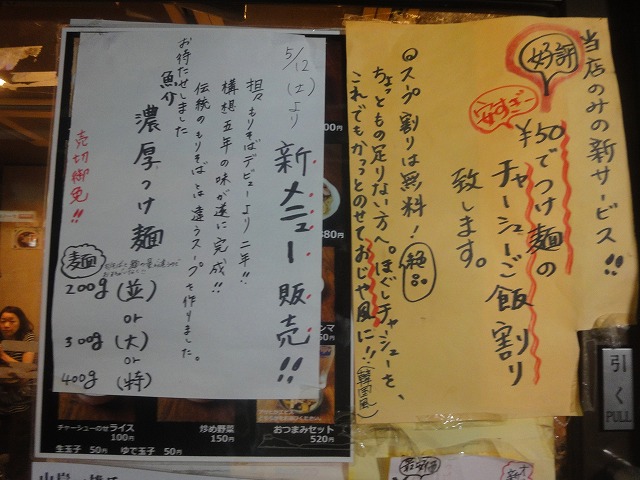 当店のみの新サービス!!
好評
安すぎー
¥50でつけ麺の
チャーシューご飯割り
致します。
◎スープ割りは無料!
絶品
ちょっともの足りない方へ。ほぐしチャーシューを、
これでもかっとのせておじや風に!!(韓国風)
5/12(土)より
新メニュー販売!!
担々もりそばデビューより二年!!
構想五年の味が遂に完成!!
伝統のもりそばとは違うスープを作りました。
お待たせしました
魚介濃厚つけ麺
売切御免!!
麺
200g(並)
or
300g(大)
or
400g(特)
チャーシューのせライス
100円
炒め野菜
150円
おつまみセット
520円
生玉子 50円 ゆで玉子 50円
引く
PULL